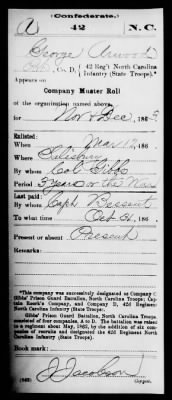 (Confederate.)
A 42 N.C.
George Atwood
Co. D, 42 Reg't North Carolina
Infantry (State Troops).*
Appears on
Company Muster Roll
of the organization named above,
for Nov & Dec, 186
Enlisted:
When Mar 12, 186
Where Salisbury
By whom Col Gibbs
Period 3 years or the War
Last paid:
By whom Capt Bessent
To what time Oct 31, 186
Present or absent Present
*This company was successively designated as Company C
Gibbs' Prison Guard Battalion, North Carolina Troops; Cap-
tain Roark's Company, and Company D, 42d Regiment
North Carolina Infantry (State Troops).
Gibbs' Prison Guard Battalion, North Carolina Troops,
consisted of four companies, A to D. The battalion was raised
to a regiment about May, 1862, by the addition of six com-
panies of recruits and designated the 42d Regiment North
Carolina Infantry (State Troops).
Book mark:
J Jacobson
Copyist.